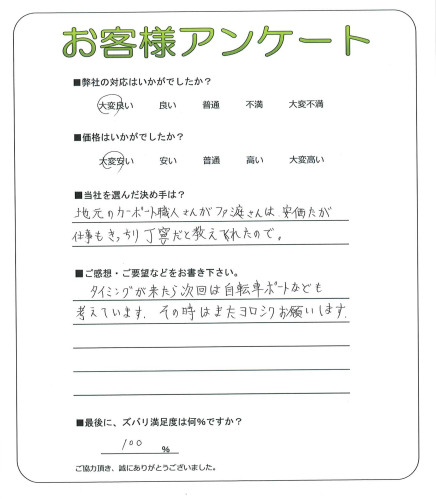 お客様アンケート
■弊社の対応はいかがでしたか？
大変良い 良い 普通 不満 大変不満
■価格はいかがでしたか？
大変安い 安い 普通 高い 大変高い
■当社を選んだ決め手は？
地元のカーポート職人さんが 渡さんは 安価だが
仕事もきっちり丁寧だと教えてくれたので。
■ご感想・ご要望などをお書き下さい。
タイミングが来たら次回は自転車ポートなども
考えています. その時はまたヨロシクお願いします.
■最後に、ズバリ満足度は何%ですか？
100 %
ご協力頂き、誠にありがとうございました。